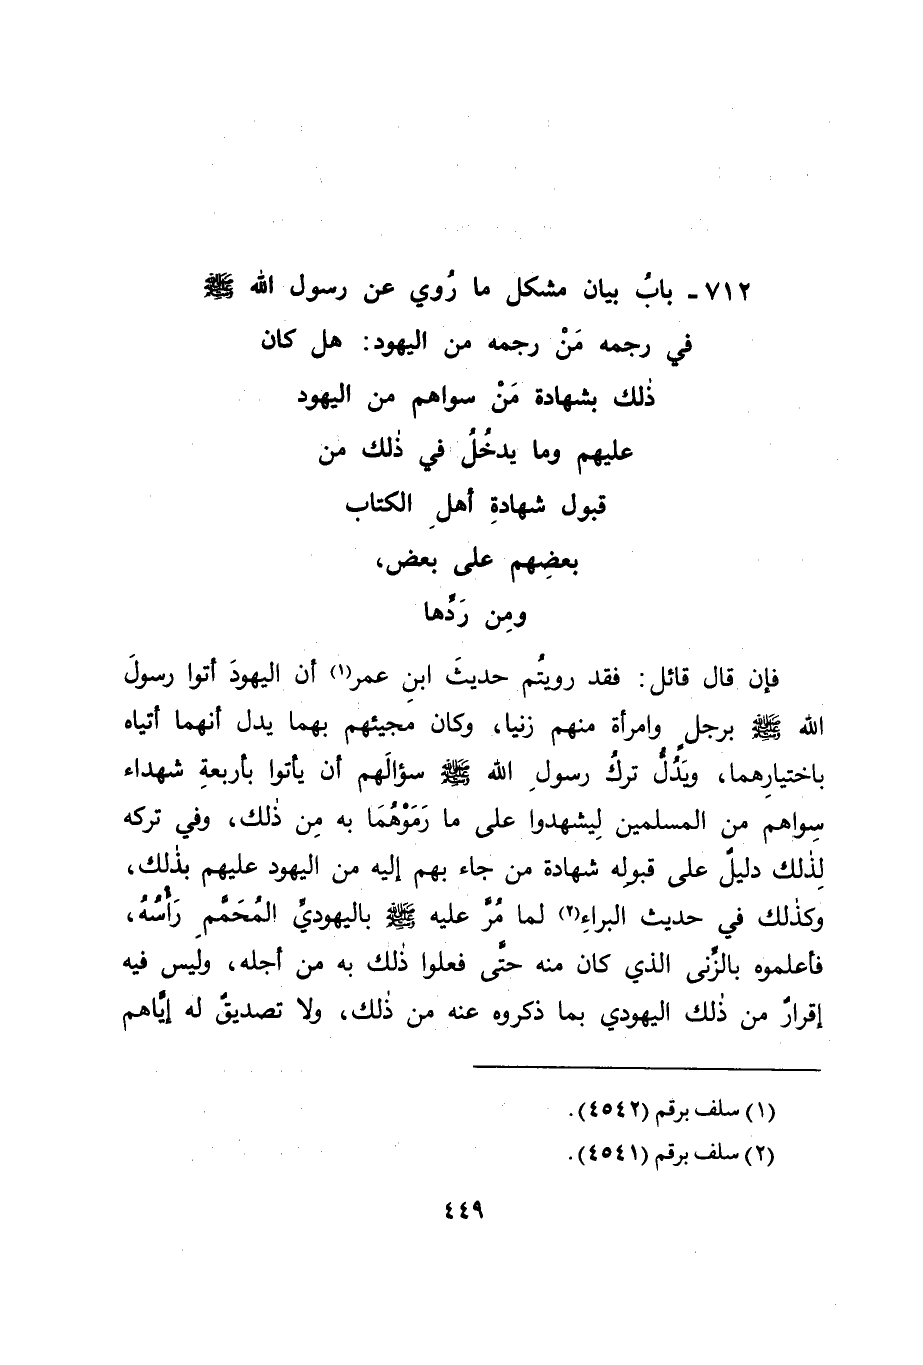 ٧١٢ـ بابُ بيان مشكل ما رُوي عن رسول الله ﷺ
في رجمه مَنْ رجمه من اليهود: هل كان
ذٰلك بشهادة مَنْ سواهم من اليهود
عليهم وما يدخُلُ في ذٰلك من
قبول شهادةِ أهلِ الكتاب
بعضِهم على بعض،
ومِن رَدِّها
فإن قال قائل: فقد رويتُم حديثَ ابنِ عمر(١) أن اليهودَ أتوا رسولَ
الله ﷺ برجلٍ وامرأة منهم زنيا، وكان مجيئهم بهما يدل أنهما أتياه
باختيارِهما، ويَدُلُّ تركُ رسولِ الله ﷺ سؤالَهم أن يأتوا بأربعةِ شهداء
سِواهم من المسلمين لِيشهدوا على ما رَمَوْهُمَا به مِن ذٰلك، وفي تركه
لِذٰلك دليلٌ على قبولِه شهادة من جاء بهم إليه من اليهود عليهم بذٰلك،
وكذٰلك في حديث البراءِ(٢) لما مُرَّ عليه ﷺ باليهوديِّ المُحَمَّمِ رَأْسُهُ،
فأعلموه بالزِّنى الذي كان منه حتَّى فعلوا ذٰلك به من أجله، وليس فيه
إقرارٌ من ذٰلك اليهودي بما ذكروه عنه من ذٰلك، ولا تصديقٌ له إيَّاهم
(١) سلف برقم (٤٥٤٢).
(٢) سلف برقم (٤٥٤١).
٤٤٩